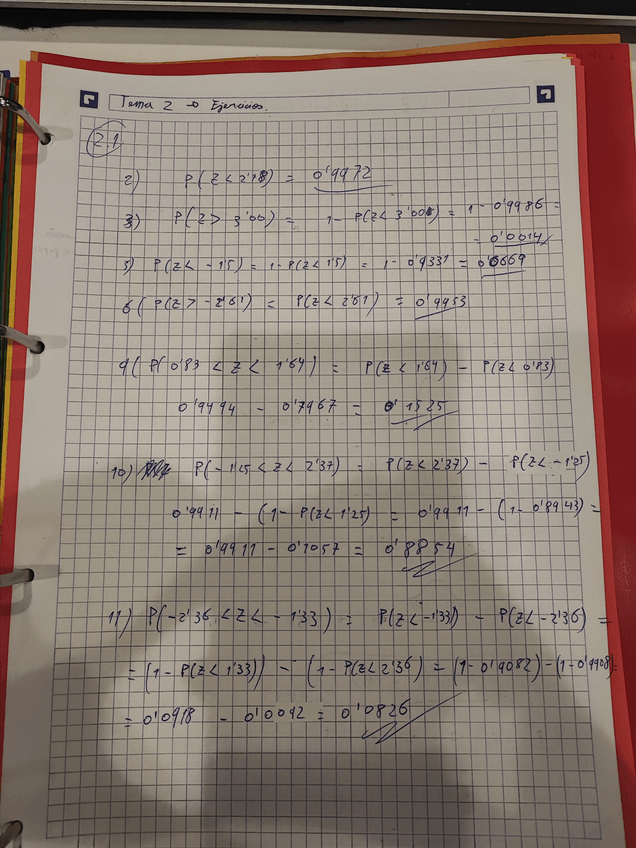 Tema 2 → Ejercicios.
2.1
2) P(Z<2'78) = 0'9972
3) P(Z> 3'00) = 1- P(Z<3'00) = 1- 0'9986 =
= 0'0014
5) P(Z< -1'5) = 1-P(Z<1'5) = 1- 0'9331 = 0'0669
6( P(Z> -2'61) = P(Z<2'61) = 0'9953
9( P(0'83 < Z < 1'64) = P(Z<1'64) - P(Z<0'83)
0'9494 - 0'7967 = 0'1525
10) P(-1'25 <Z< 2'37) = P(Z<2'37) - P(Z< -1'25)
0'9911 - (1- P(Z<1'25) = 0'9911 - (1- 0'8943) =
= 0'9911 - 0'1057 = 0'8854
11) P(-2'36 <Z< -1'33) = P(Z< -1'33) - P(Z< -2'36) =
= (1- P(Z<1'33)) - (1- P(Z<2'36) = (1-0'9082)-(1-0'9908)=
= 0'0918 - 0'0092 = 0'0826